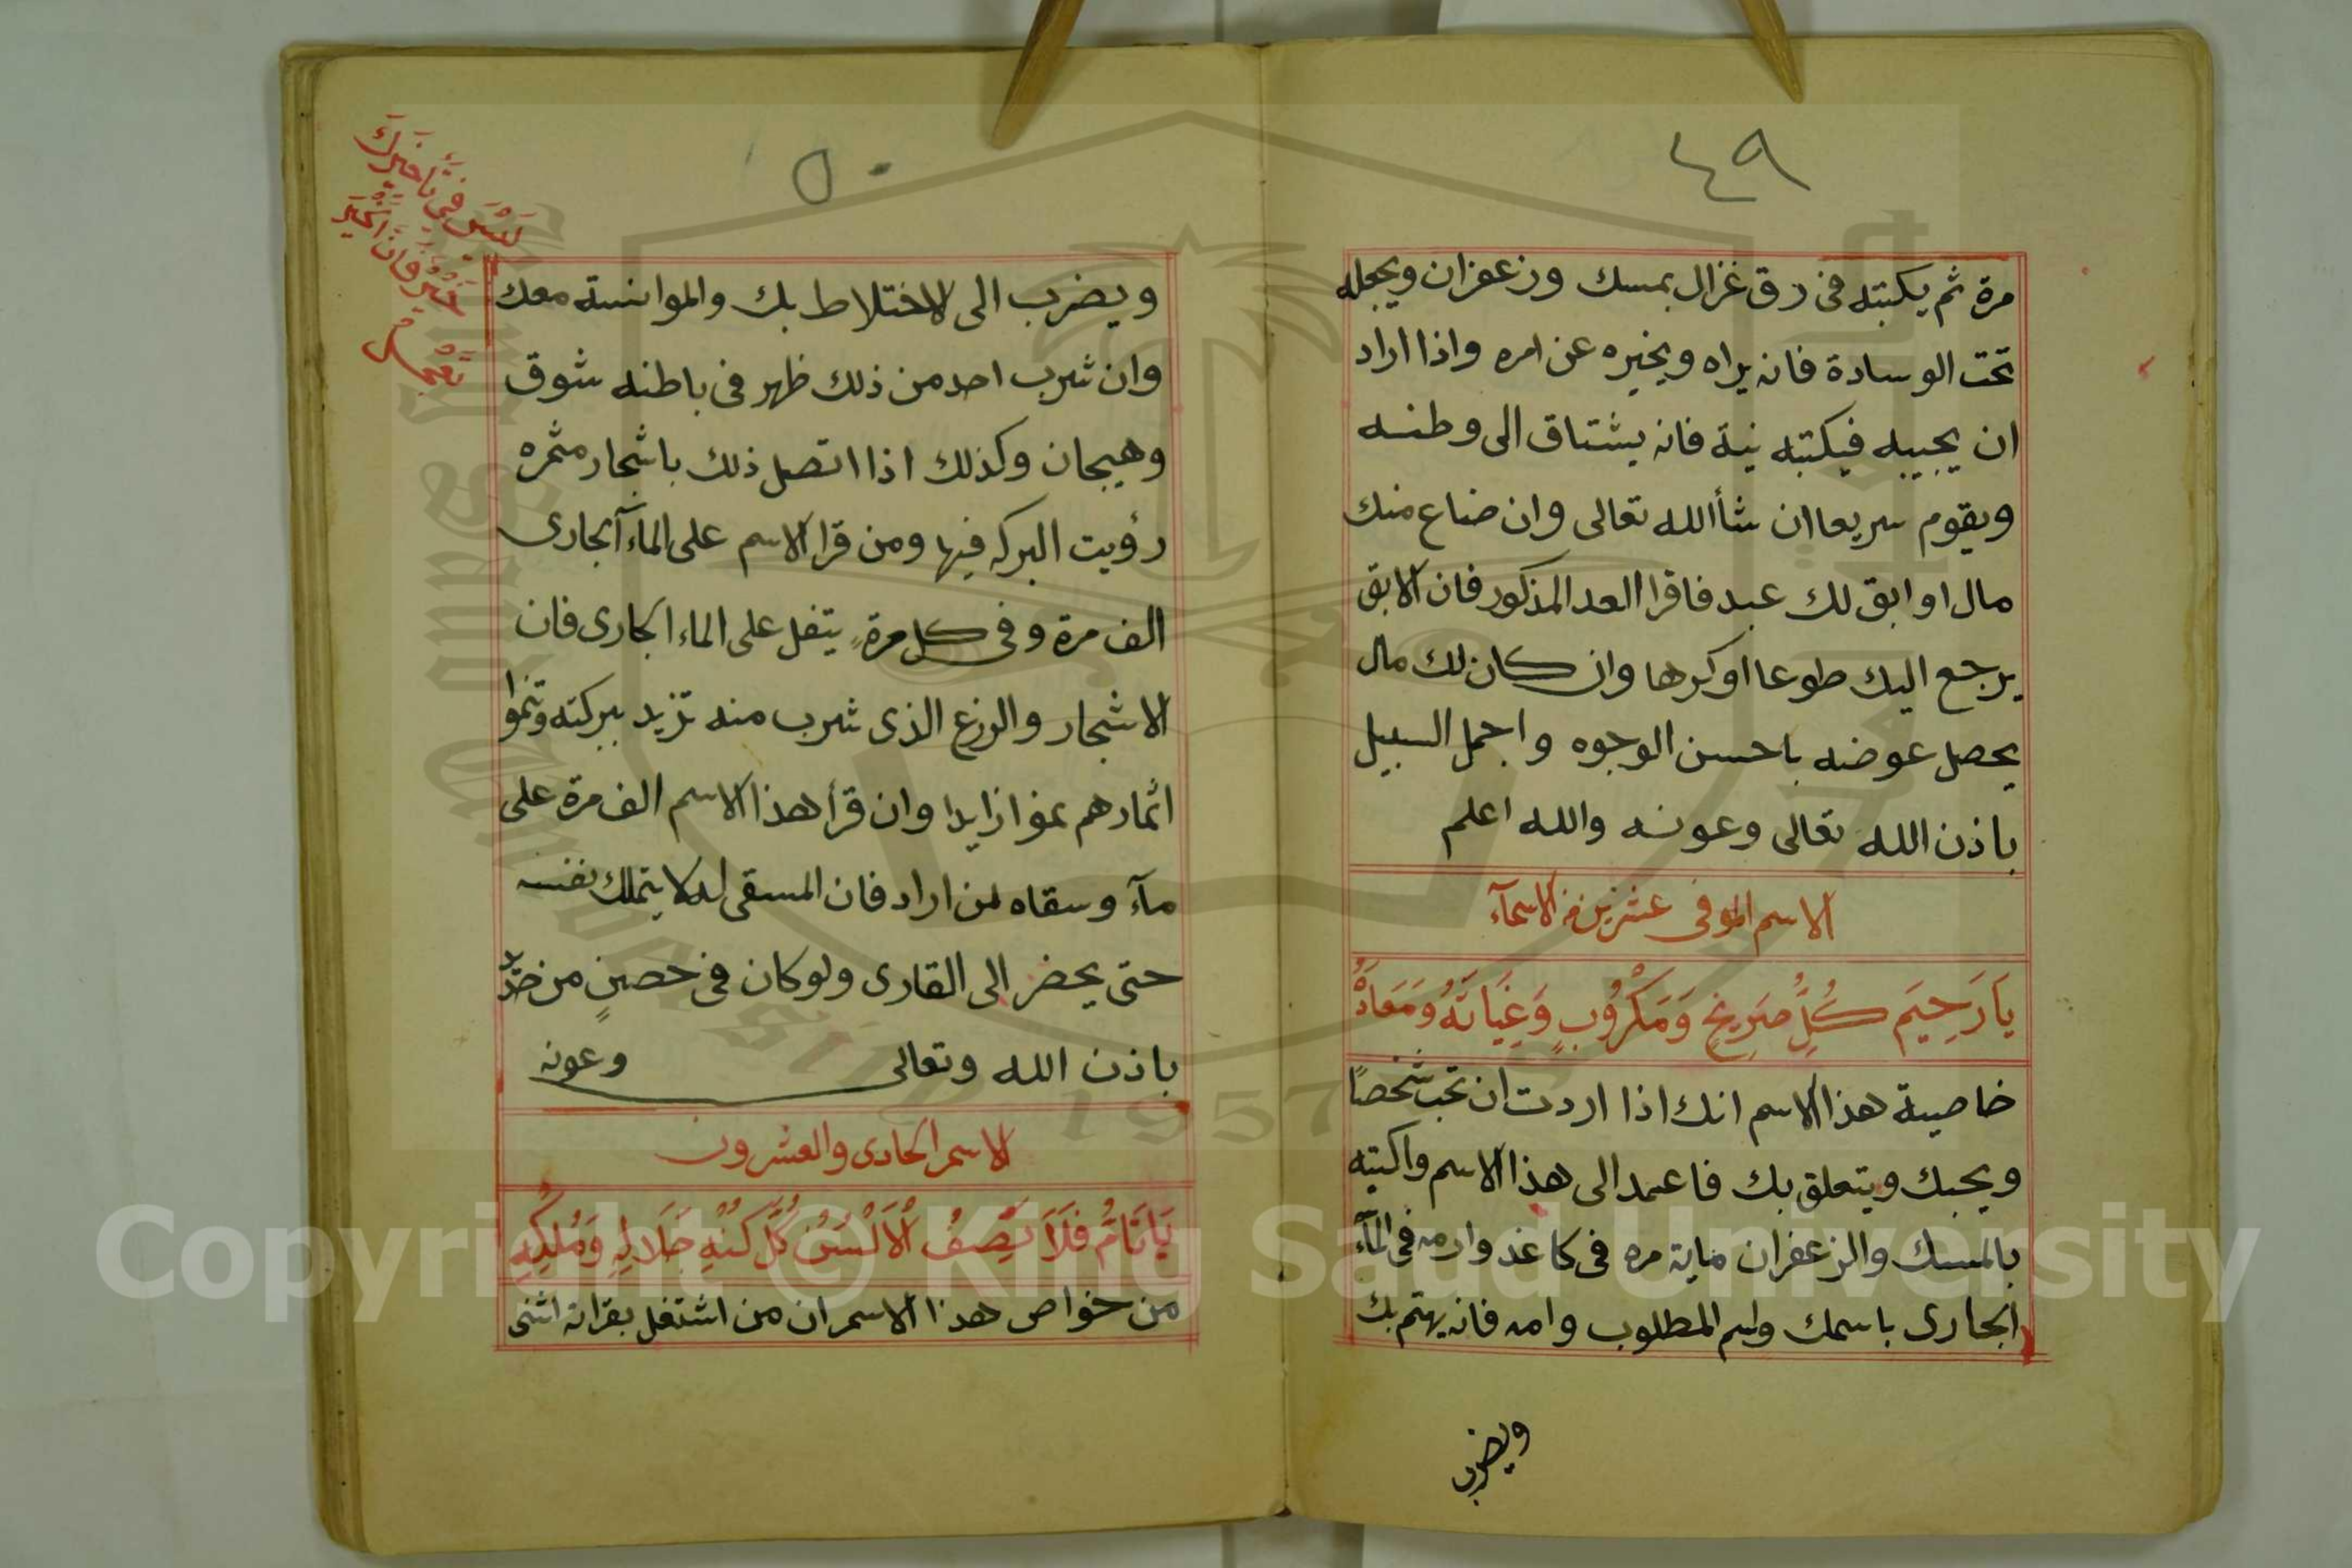 ٤٩
مرة ثم يكبته فى رق غزال بمسك وزعفران ويجعله
تحت الوسادة فانه يراه ويخبره عن امره واذا اراد
ان يجيبه فيكتبه نية فانه يشتاق الى وطنه
ويقوم سريعا ان شأالله تعالى وان ضاع منك
مال او ابق لك عبد فاقرا العد المذكور فان الابق
يرجع اليك طوعا اوكرها وان كان لك مال
يحصل عوضه باحسن الوجوه واجمل السبيل
باذن الله تعالى وعونه والله اعلم
الاسم الموفى عشرين من الاسمآء
يَا رَحِيمَ كُلِّ صَرِيخٍ وَمَكْرُوبٍ وَغِيَاثَهُ وَمَعَاذَهُ
خاصية هذا الاسم انك اذا اردت ان تحب شخصًا
ويحبك ويتعلق بك فاعمد الى هذا الاسم واكتبه
بالمسك والزعفران ماية مره فى كاغد وارمه فى المآء
الجارى باسمك واسم المطلوب وامه فانه يهتم بك
ويضرب
٥٠
ويضرب الى الاختلاط بك والموانسة معك
وان شرب احد من ذلك ظهر فى باطنه شوق
وهيجان وكذلك اذا اتصل ذلك باشجار مثمره
رؤيت البركه فيها ومن قرا الاسم على المآء الجارى
الف مرة وفى كل مرة يتفل على الماء الجارى فان
الاشجار والزرع الذى شرب منه تزيد ببركته وتنموا
اثمارهم نموا زايدا وان قرأ هذا الاسم الف مرة على
مآء وسقاه لمن اراد فان المسقى له لا يتملك نفسه
حتى يحضر الى القارى ولو كان فى حصنٍ من حديد
باذن الله وتعالى وعونه
الاسم الحادى والعشرون
يَا تَامُّ فَلَا تَصِفُ الْاَلْسُنُ كُلَّ كُنْهِ جَلَالِهِ وَمُلْكِهِ
من خواص هذا الاسم ان من اشتغل بقراته اثنى
لَيْسَ فِي تَأخِيرِكَ
خَيْرٌ فَاِنَّ الْخَيْرَ
King Saud University
1957
Copyright © King Saud University